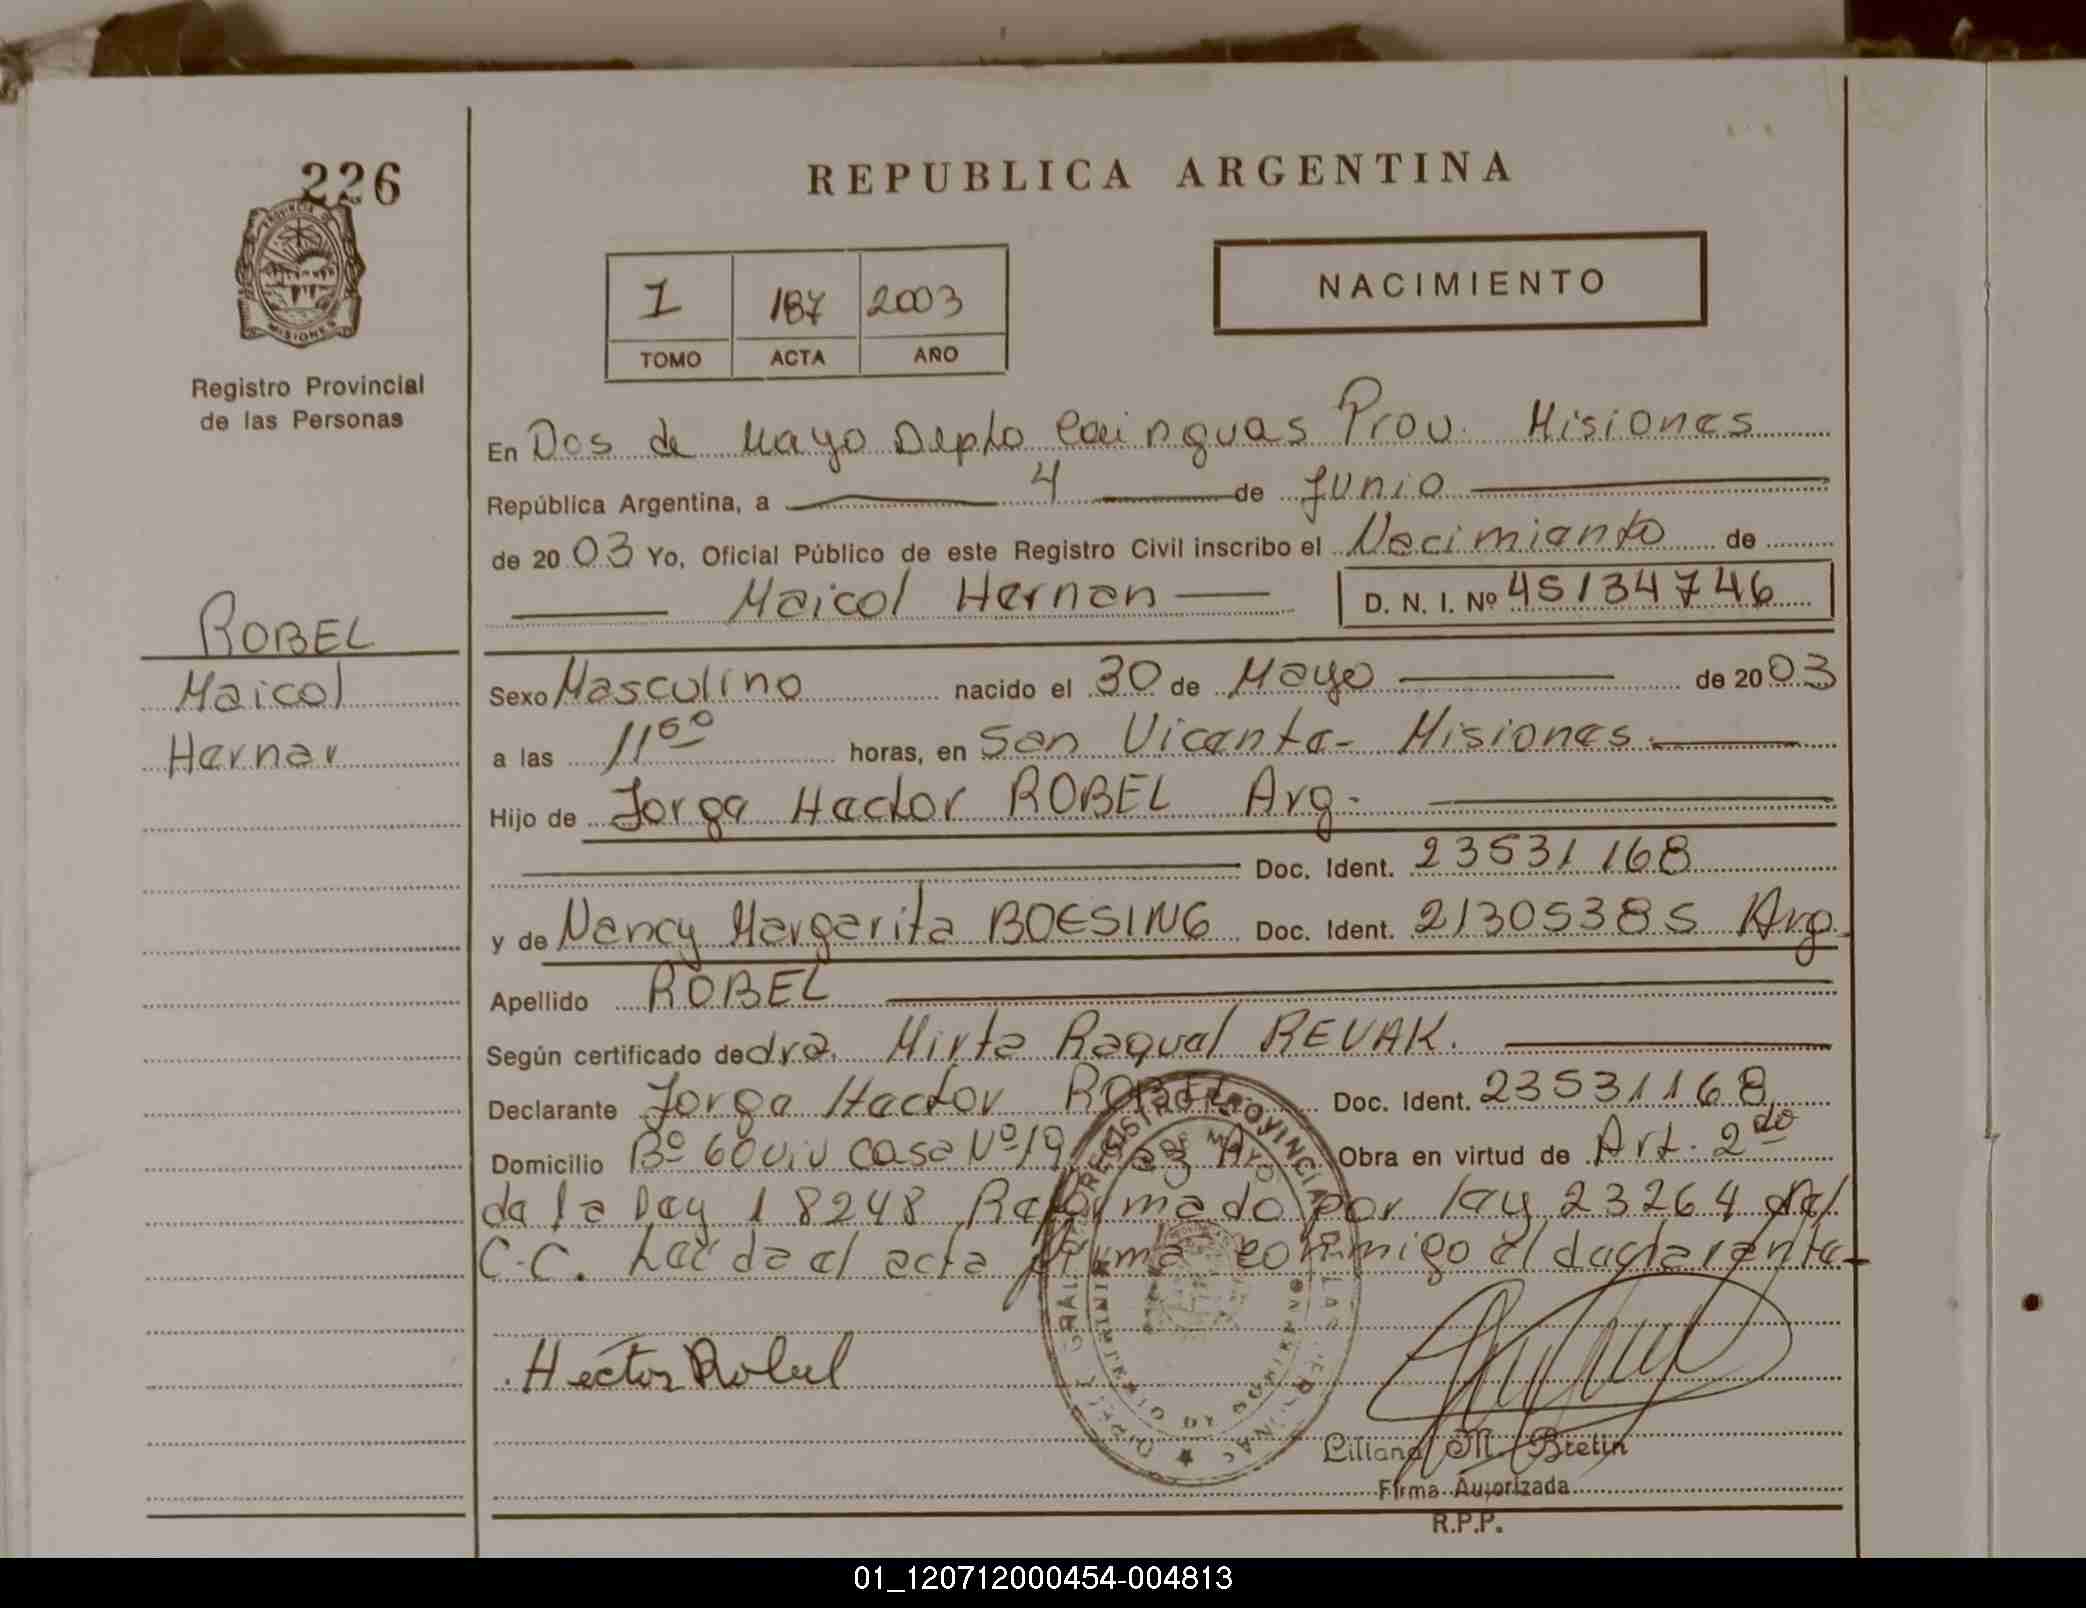 226
REPUBLICA ARGENTINA
PROVINCIA DE
MISIONES
Registro Provincial
de las Personas
I 187 2003
TOMO ACTA AÑO
NACIMIENTO
En Dos de Mayo Depto Cainguas Prov. Misiones
República Argentina, a 4 de Junio
de 2003 Yo, Oficial Público de este Registro Civil inscribo el Nacimiento de
Maicol Hernan D. N. I. Nº 45134746
ROBEL
Maicol
Hernan
Sexo Masculino nacido el 30 de Mayo de 2003
a las 11⁵⁰ horas, en San Vicente - Misiones.
Hijo de Jorge Hector ROBEL Arg.
Doc. Ident. 23531168
y de Nancy Margarita BOESING Doc. Ident. 21305385 Arg.
Apellido ROBEL
Según certificado de dra. Mirta Raquel REVAK.
Declarante Jorge Hector ROBEL Doc. Ident. 23531168
Domicilio Bº 60 viv casa Nº 19 Obra en virtud de Art. 2do
de la Ley 18248 Reformado por ley 23264 del
C.C. Leida el acta firma conmigo el declarante
Hector Robel
Liliana M. Bretin
Firma Autorizada
R.P.P.
01_120712000454-004813